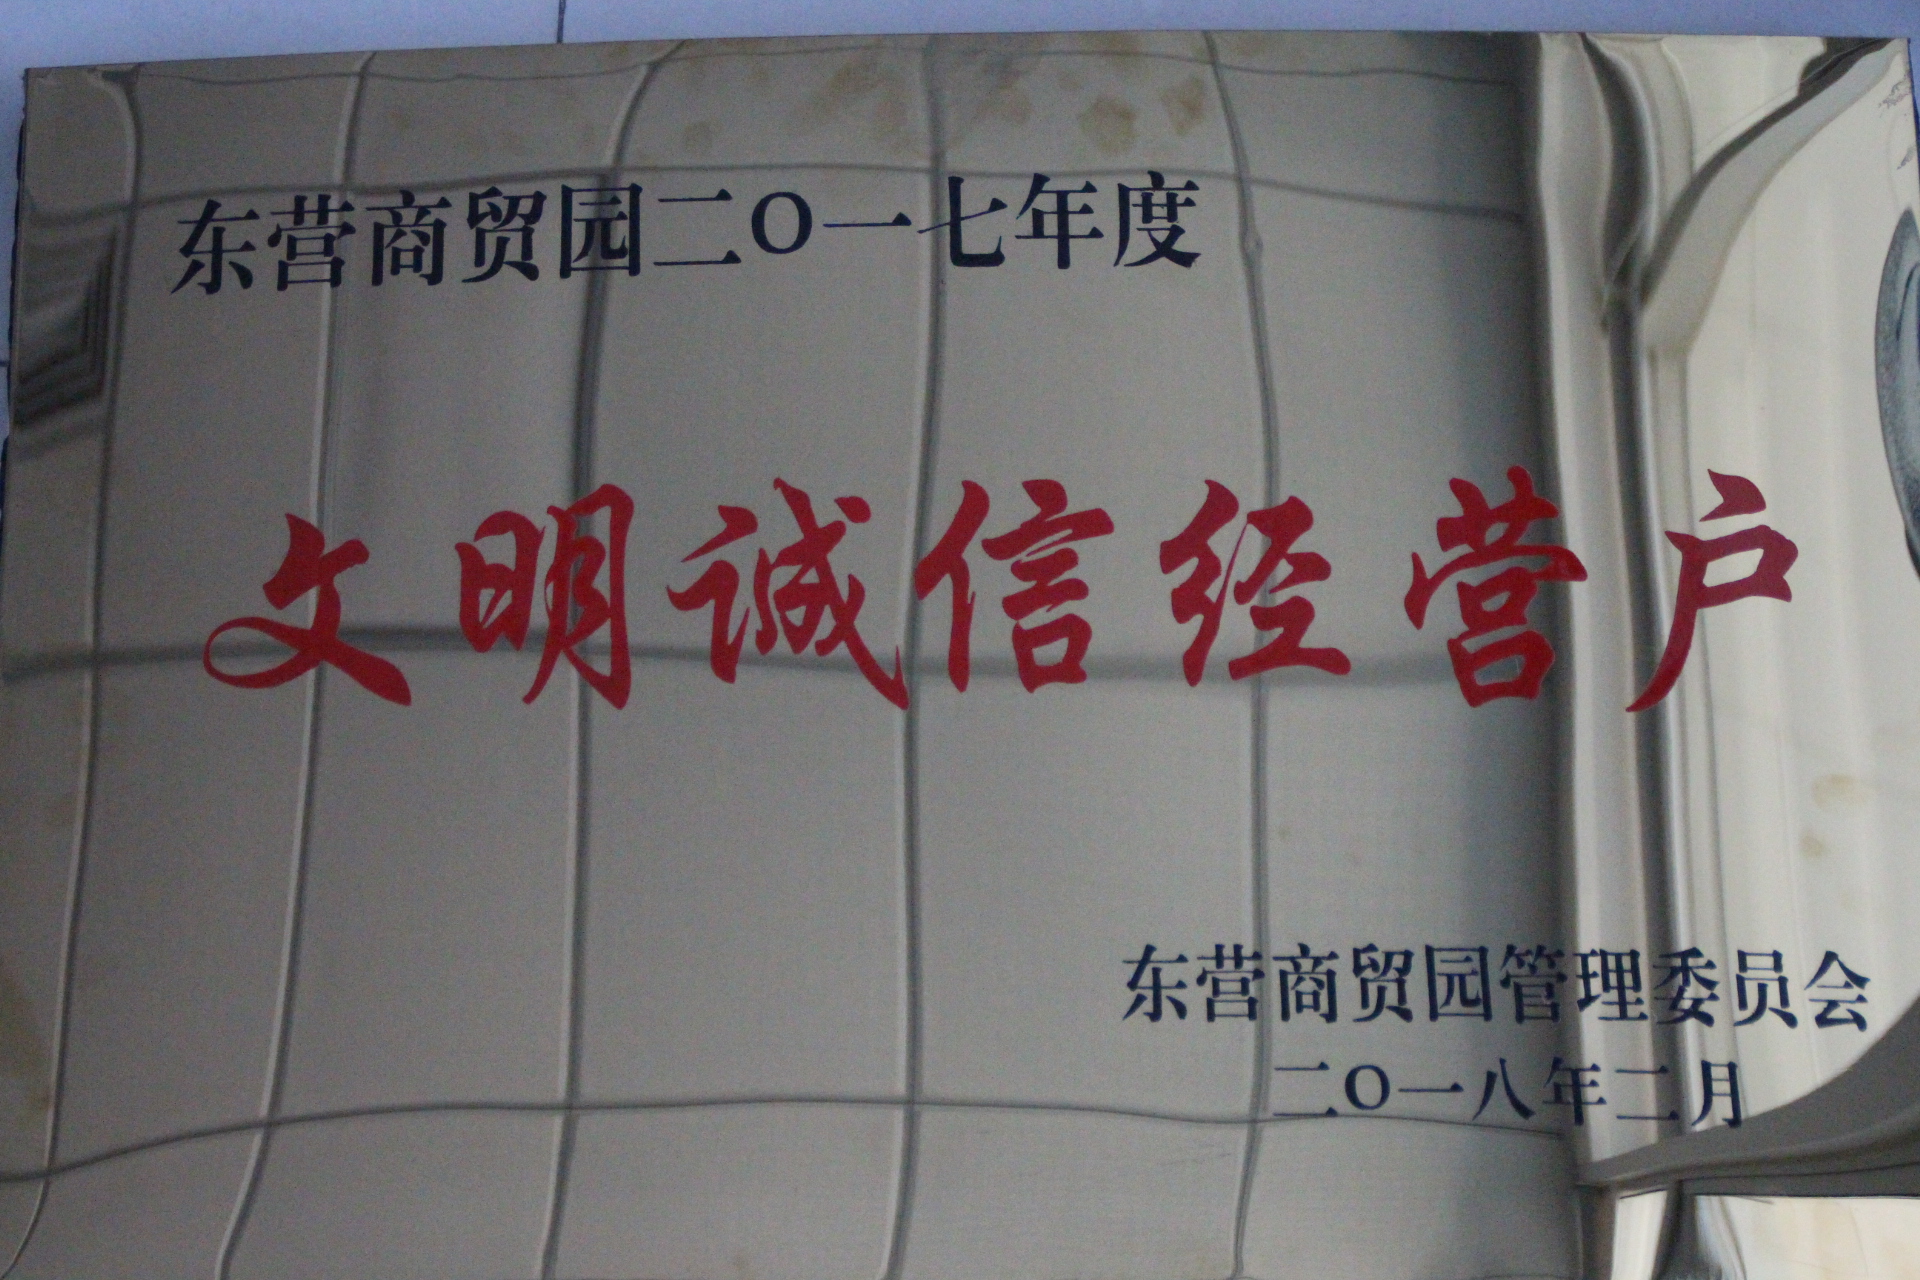 东营商贸园二O一七年度
文明诚信经营户
东营商贸园管理委员会
二O一八年二月